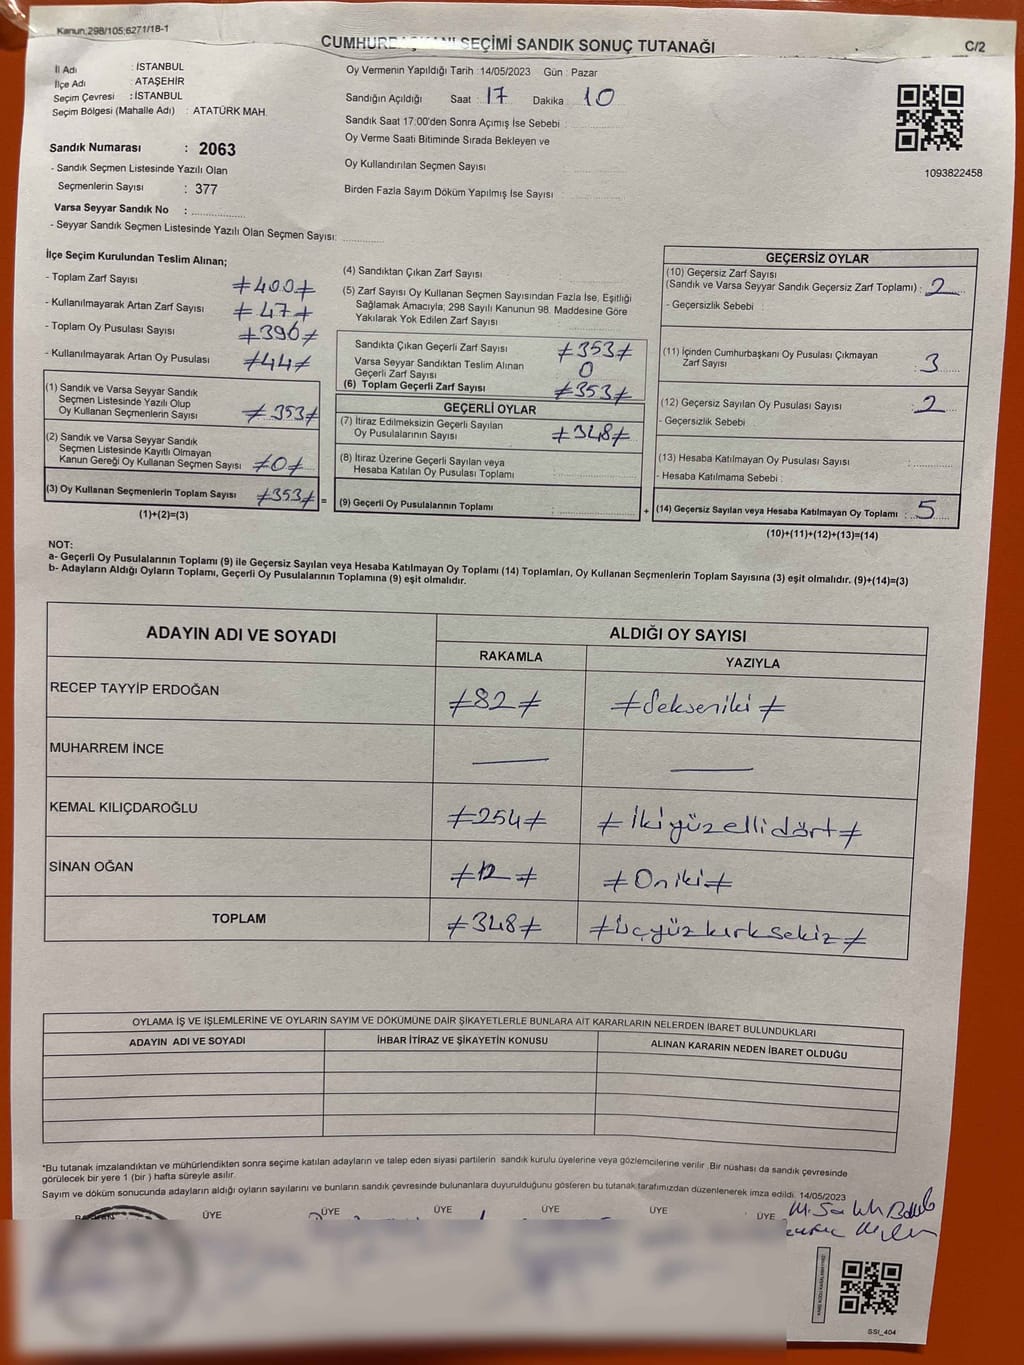 Kanun;298/105;6271/18-1
CUMHURBAŞKANI SEÇİMİ SANDIK SONUÇ TUTANAĞI
C/2
İl Adı : İSTANBUL
İlçe Adı : ATAŞEHİR
Seçim Çevresi : İSTANBUL
Seçim Bölgesi (Mahalle Adı) : ATATÜRK MAH.
Sandık Numarası : 2063
- Sandık Seçmen Listesinde Yazılı Olan
Seçmenlerin Sayısı : 377
Varsa Seyyar Sandık No :
- Seyyar Sandık Seçmen Listesinde Yazılı Olan Seçmen Sayısı:
Oy Vermenin Yapıldığı Tarih : 14/05/2023 Gün : Pazar
Sandığın Açıldığı Saat : 17 Dakika : 10
Sandık Saat 17:00'den Sonra Açımış İse Sebebi :
Oy Verme Saati Bitiminde Sırada Bekleyen ve
Oy Kullandırılan Seçmen Sayısı
Birden Fazla Sayım Döküm Yapılmış İse Sayısı
1093822458
İlçe Seçim Kurulundan Teslim Alınan;
- Toplam Zarf Sayısı ≠400≠
- Kullanılmayarak Artan Zarf Sayısı ≠47≠
- Toplam Oy Pusulası Sayısı ≠396≠
- Kullanılmayarak Artan Oy Pusulası ≠44≠
(1) Sandık ve Varsa Seyyar Sandık
Seçmen Listesinde Yazılı Olup
Oy Kullanan Seçmenlerin Sayısı ≠353≠
(2) Sandık ve Varsa Seyyar Sandık
Seçmen Listesinde Kayıtlı Olmayan
Kanun Gereği Oy Kullanan Seçmen Sayısı ≠0≠
(3) Oy Kullanan Seçmenlerin Toplam Sayısı ≠353≠ =
(1)+(2)=(3)
(4) Sandıktan Çıkan Zarf Sayısı
(5) Zarf Sayısı Oy Kullanan Seçmen Sayısından Fazla İse, Eşitliği
Sağlamak Amacıyla; 298 Sayılı Kanunun 98. Maddesine Göre
Yakılarak Yok Edilen Zarf Sayısı
Sandıkta Çıkan Geçerli Zarf Sayısı ≠353≠
Varsa Seyyar Sandıktan Teslim Alınan
Geçerli Zarf Sayısı 0
(6) Toplam Geçerli Zarf Sayısı ≠353≠
GEÇERLİ OYLAR
(7) İtiraz Edilmeksizin Geçerli Sayılan
Oy Pusulalarının Sayısı ≠348≠
(8) İtiraz Üzerine Geçerli Sayılan veya
Hesaba Katılan Oy Pusulası Toplamı
(9) Geçerli Oy Pusulalarının Toplamı +
GEÇERSİZ OYLAR
(10) Geçersiz Zarf Sayısı
(Sandık ve Varsa Seyyar Sandık Geçersiz Zarf Toplamı) : 2
- Geçersizlik Sebebi :
(11) İçinden Cumhurbaşkanı Oy Pusulası Çıkmayan
Zarf Sayısı : 3
(12) Geçersiz Sayılan Oy Pusulası Sayısı : 2
- Geçersizlik Sebebi :
(13) Hesaba Katılmayan Oy Pusulası Sayısı :
- Hesaba Katılmama Sebebi :
(14) Geçersiz Sayılan veya Hesaba Katılmayan Oy Toplamı : 5
(10)+(11)+(12)+(13)=(14)
NOT:
a- Geçerli Oy Pusulalarının Toplamı (9) ile Geçersiz Sayılan veya Hesaba Katılmayan Oy Toplamı (14) Toplamları, Oy Kullanan Seçmenlerin Toplam Sayısına (3) eşit olmalıdır. (9)+(14)=(3)
b- Adayların Aldığı Oyların Toplamı, Geçerli Oy Pusulalarının Toplamına (9) eşit olmalıdır.
ADAYIN ADI VE SOYADI ALDIĞI OY SAYISI
RAKAMLA YAZIYLA
RECEP TAYYİP ERDOĞAN ≠82≠ ≠Sekseniki≠
MUHARREM İNCE — —
KEMAL KILIÇDAROĞLU ≠254≠ ≠İkiyüzellidört≠
SİNAN OĞAN ≠12≠ ≠Oniki≠
TOPLAM ≠348≠ ≠üçyüzkırksekiz≠
OYLAMA İŞ VE İŞLEMLERİNE VE OYLARIN SAYIM VE DÖKÜMÜNE DAİR ŞİKAYETLERLE BUNLARA AİT KARARLARIN NELERDEN İBARET BULUNDUKLARI
ADAYIN ADI VE SOYADI İHBAR İTİRAZ VE ŞİKAYETİN KONUSU ALINAN KARARIN NEDEN İBARET OLDUĞU
*Bu tutanak imzalandıktan ve mühürlendikten sonra seçime katılan adayların ve talep eden siyasi partilerin sandık kurulu üyelerine veya gözlemcilerine verilir. Bir nüshası da sandık çevresinde
görülecek bir yere 1 (bir ) hafta süreyle asılır.
Sayım ve döküm sonucunda adayların aldığı oyların sayılarını ve bunların sandık çevresinde bulunanlara duyurulduğunu gösteren bu tutanak tarafımızdan düzenlenerek imza edildi. 14/05/2023
ÜYE ÜYE ÜYE ÜYE ÜYE ÜYE
SSI_404